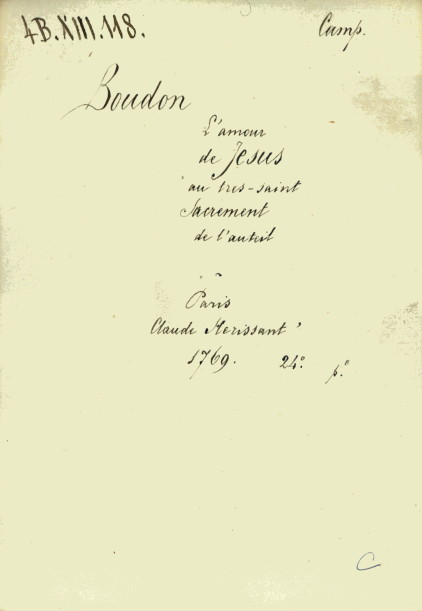 4B.XIII.118.
Camp.
Boudon
L'amour
de Jesus
au tres-saint
Sacrement
de l'auteil
Paris
Claude Herissant
1769. 24°. p°.
C